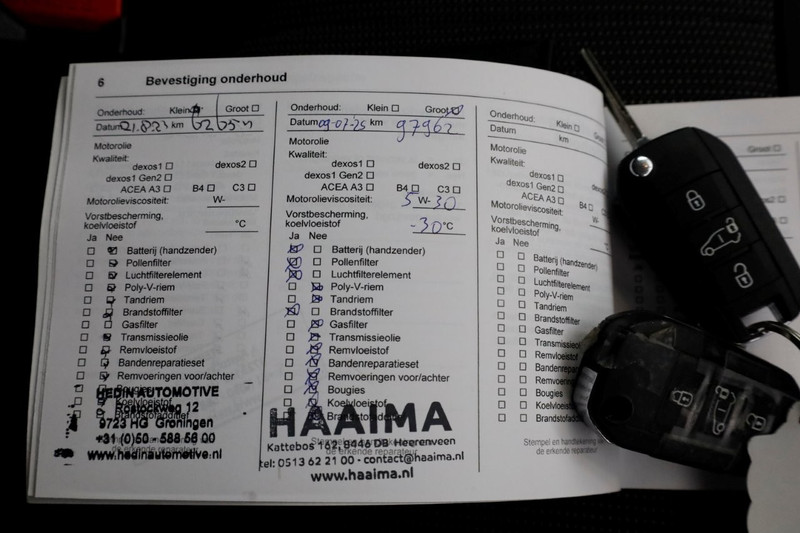 6 Bevestiging onderhoud
Onderhoud: Klein Groot
Datum 21.8.24 km
Motorolie
Kwaliteit:
dexos1 dexos2
dexos1 Gen2
ACEA A3 B4 C3
Motorolieviscositeit: W-
Vorstbescherming,
koelvloeistof °C
Ja Nee
Batterij (handzender)
Pollenfilter
Luchtfilterelement
Poly-V-riem
Tandriem
Brandstoffilter
Gasfilter
Transmissieolie
Remvloeistof
Bandenreparatieset
Remvoeringen voor/achter
Bougies
Koelvloeistof
HEDIN AUTOMOTIVE
Rostockweg 12
9723 HG Groningen
+31 (0)50 - 588 58 00
www.hedinautomotive.nl
Onderhoud: Klein Groot
Datum 09-07-25 km 97962
Motorolie
Kwaliteit:
dexos1 dexos2
dexos1 Gen2
ACEA A3 B4 C3
Motorolieviscositeit: 5 W-30
Vorstbescherming,
koelvloeistof -30 °C
Ja Nee
Batterij (handzender)
Pollenfilter
Luchtfilterelement
Poly-V-riem
Tandriem
Brandstoffilter
Gasfilter
Transmissieolie
Remvloeistof
Bandenreparatieset
Remvoeringen voor/achter
Bougies
Koelvloeistof
HAAIMA
Kattebos 162, 8446 DB Heerenveen
tel: 0513 62 21 00 - contact@haaima.nl
www.haaima.nl
Onderhoud: Klein
Datum km
Motorolie
Kwaliteit:
dexos1
dexos1 Gen2
ACEA A3 B4
Motorolieviscositeit: W-
Vorstbescherming,
koelvloeistof
Ja Nee
Batterij (handzender)
Pollenfilter
Luchtfilterelement
Poly-V-riem
Tandriem
Brandstoffilter
Gasfilter
Remvloeistof
Bougies
Stempel en handtekening
de erkende reparateur